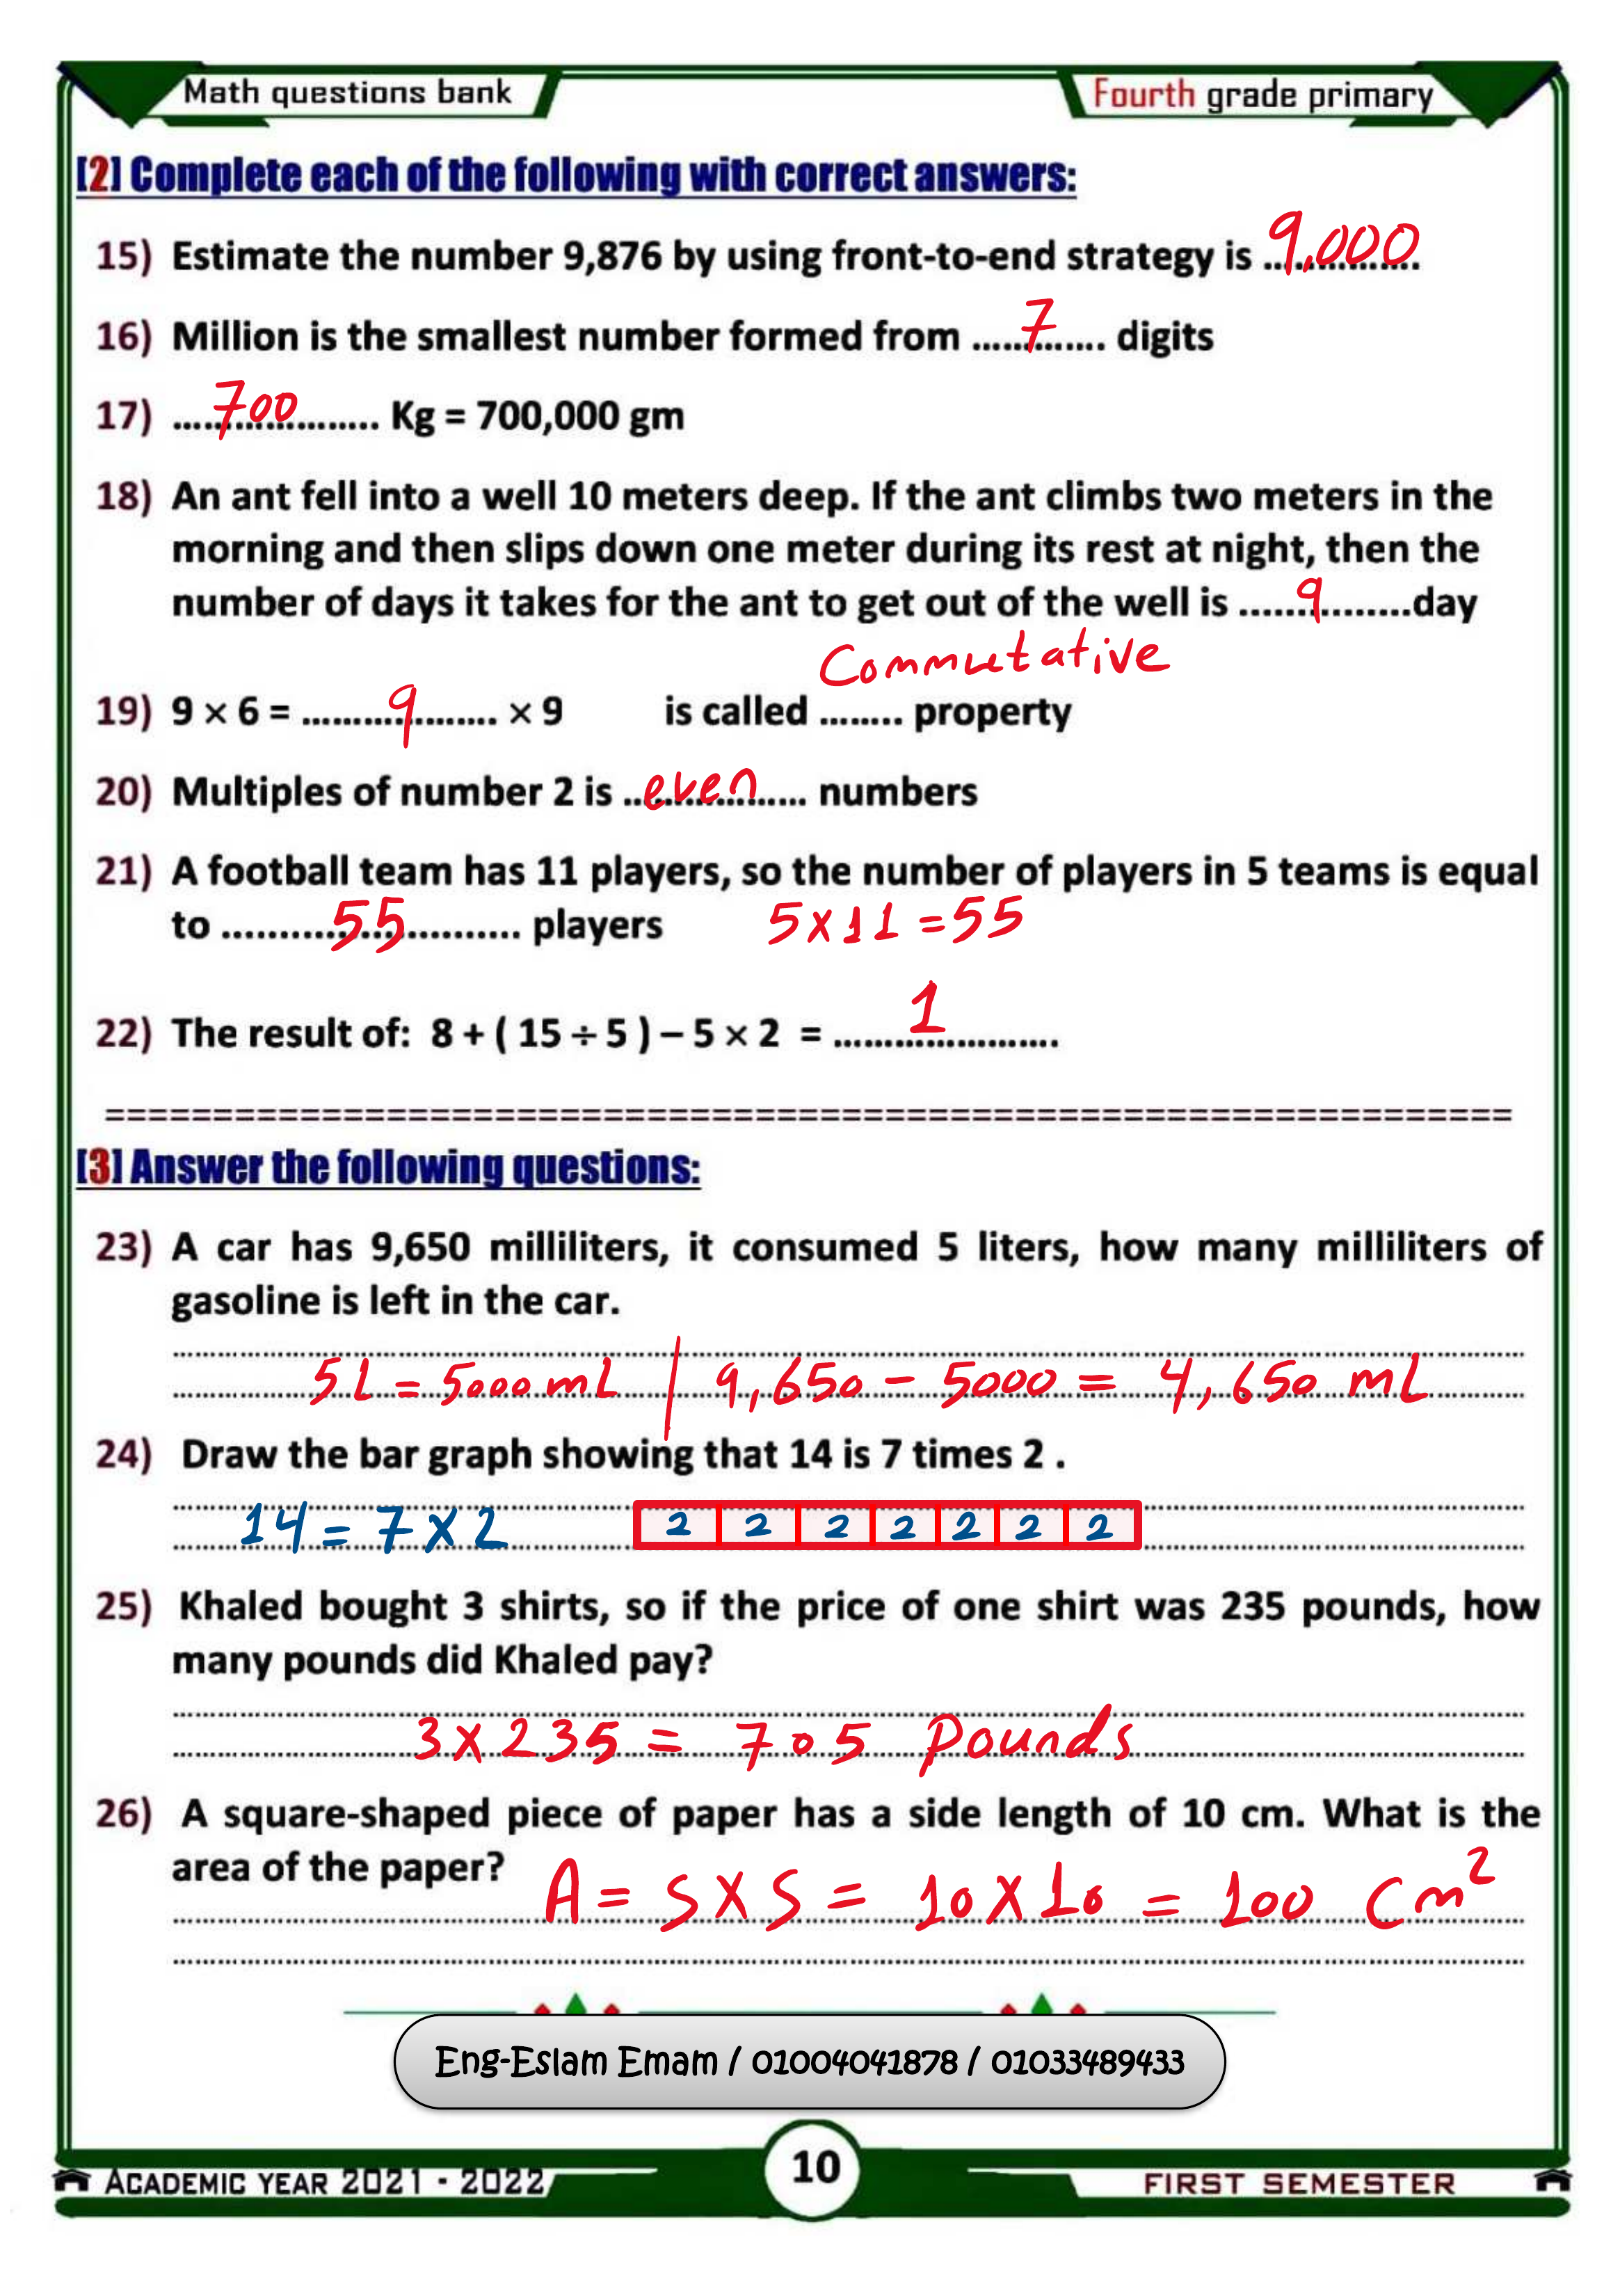 Math questions bank
Fourth grade primary
[2] Complete each of the following with correct answers:
15) Estimate the number 9,876 by using front-to-end strategy is ............... 9,000
16) Million is the smallest number formed from ......7....... digits
17) ......700.......... Kg = 700,000 gm
18) An ant fell into a well 10 meters deep. If the ant climbs two meters in the
morning and then slips down one meter during its rest at night, then the
number of days it takes for the ant to get out of the well is ......9........day
Commutative
19) 9 × 6 = .........9......... × 9 is called ........ property
20) Multiples of number 2 is ..even.............. numbers
21) A football team has 11 players, so the number of players in 5 teams is equal
to ..........55.......... players 5×11 = 55
22) The result of: 8 + ( 15 ÷ 5 ) – 5 × 2 = .........1............
[3] Answer the following questions:
23) A car has 9,650 milliliters, it consumed 5 liters, how many milliliters of
gasoline is left in the car.
5L = 5000 mL | 9,650 - 5000 = 4,650 mL
24) Draw the bar graph showing that 14 is 7 times 2 .
14 = 7 × 2 2 2 2 2 2 2 2
25) Khaled bought 3 shirts, so if the price of one shirt was 235 pounds, how
many pounds did Khaled pay?
3 × 235 = 705 Pounds
26) A square-shaped piece of paper has a side length of 10 cm. What is the
area of the paper? A = S × S = 10 × 10 = 100 Cm²
Eng-Eslam Emam / 01004041878 / 01033489433
ACADEMIC YEAR 2021 - 2022
10
FIRST SEMESTER